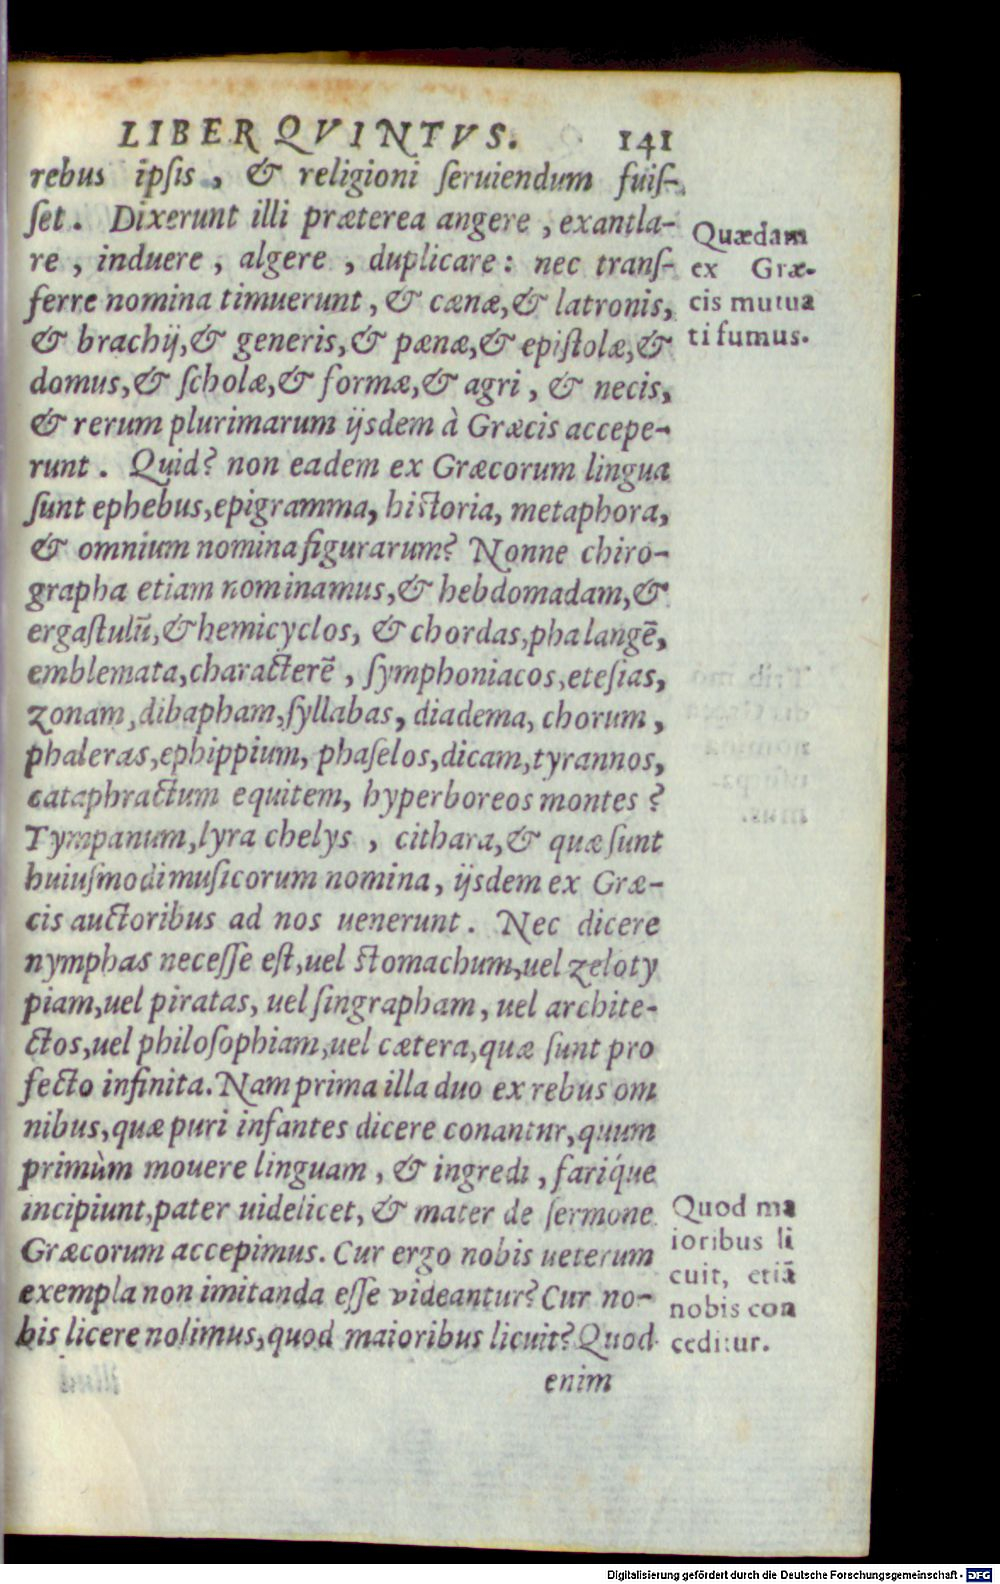 LIBER QVINTVS. 141
rebus ipsis, & religioni seruiendum fuis-
set. Dixerunt illi præterea angere, exantla-
re, induere, algere, duplicare: nec transf-
ferre nomina timuerunt, & cænæ, & latronis,
& brachij, & generis, & pænæ, & epistolæ, &
domus, & scholæ, & formæ, & agri, & necis,
& rerum plurimarum ijsdem à Græcis accepe-
runt. Quid? non eadem ex Græcorum lingua
sunt ephebus, epigramma, historia, metaphora,
& omnium nomina figurarum? Nonne chiro-
grapha etiam nominamus, & hebdomadam, &
ergastulū, & hemicyclos, & chordas, phalangē,
emblemata, characterē, symphoniacos, etesias,
zonam, dibapham, syllabas, diadema, chorum,
phaleras, ephippium, phaselos, dicam, tyrannos,
cataphractum equitem, hyperboreos montes?
Tympanum, lyra chelys, cithara, & quæ sunt
huiusmodi musicorum nomina, ijsdem ex Græ-
cis auctoribus ad nos uenerunt. Nec dicere
nymphas necesse est, uel stomachum, uel zeloty
piam, uel piratas, uel singrapham, uel archite-
ctos, uel philosophiam, uel cætera, quæ sunt pro
fecto infinita. Nam prima illa duo ex rebus om
nibus, quæ puri infantes dicere conantur, quum
primùm mouere linguam, & ingredi, faríque
incipiunt, pater uidelicet, & mater de sermone
Græcorum accepimus. Cur ergo nobis ueterum
exempla non imitanda esse videantur? Cur no-
bis licere nolimus, quod maioribus licuit? Quod
enim
Quædam
ex Græ-
cis mutua
ti sumus.
Quod ma
ioribus li
cuit, etiā
nobis con
ceditur.
Digitalisierung gefördert durch die Deutsche Forschungsgemeinschaft - DFG